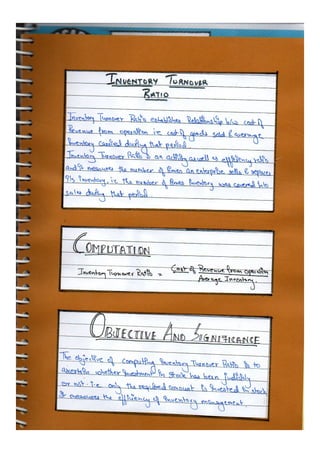 INVENTORY TURNOVER
RATIO
Inventory Turnover Ratio establishes Relationship b/w cost of
Revenue from operation i.e cost of goods sold & average
Inventory carried during that period.
Inventory Turnover Ratio is an activity as well as efficiency ratio
and it measures the number of times an enterprise sells & replaces
its inventory, i.e. the number of times Inventory was covered b/o
sales during that period.
COMPUTATION
Inventory Turnover Ratio = Cost of Revenue from operation
Average Inventory.
OBJECTIVE AND SIGNIFICANCE
The objective of computing Inventory Turnover Ratio is to
ascertain whether investment in stock has been judicibly
or not. i.e. only the required amount is invested in stock
It measures the efficiency of Inventory management.